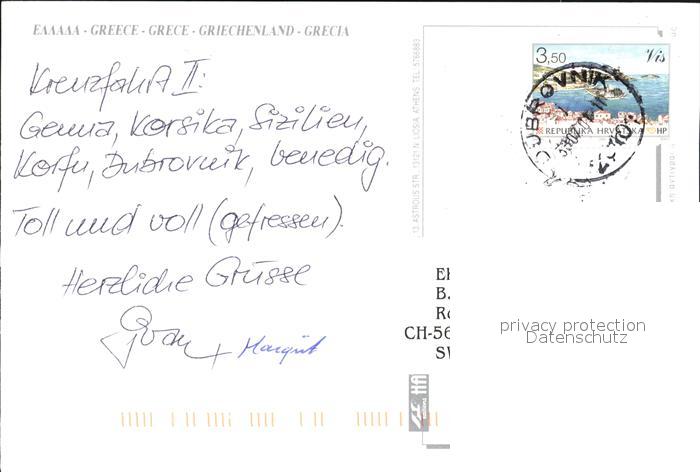 ΕΛΛΑΔΑ - GREECE - GRECE - GRIECHENLAND - GRECIA
Kreuzfahrt II:
Genua, Korsika, Sizilien,
Korfu, Dubrovnik, Venedig.
Toll und voll (gefressen).
Herzliche Grüsse
+ Margrit
3,50
Vis
REPUBLIKA HRVATSKA HP
DUBROVNIK
13 ASTROUS STR. 13121 N. LIOSIA, ATHENS TEL. 5766883
B.
CH-56
privacy protection
Datenschutz